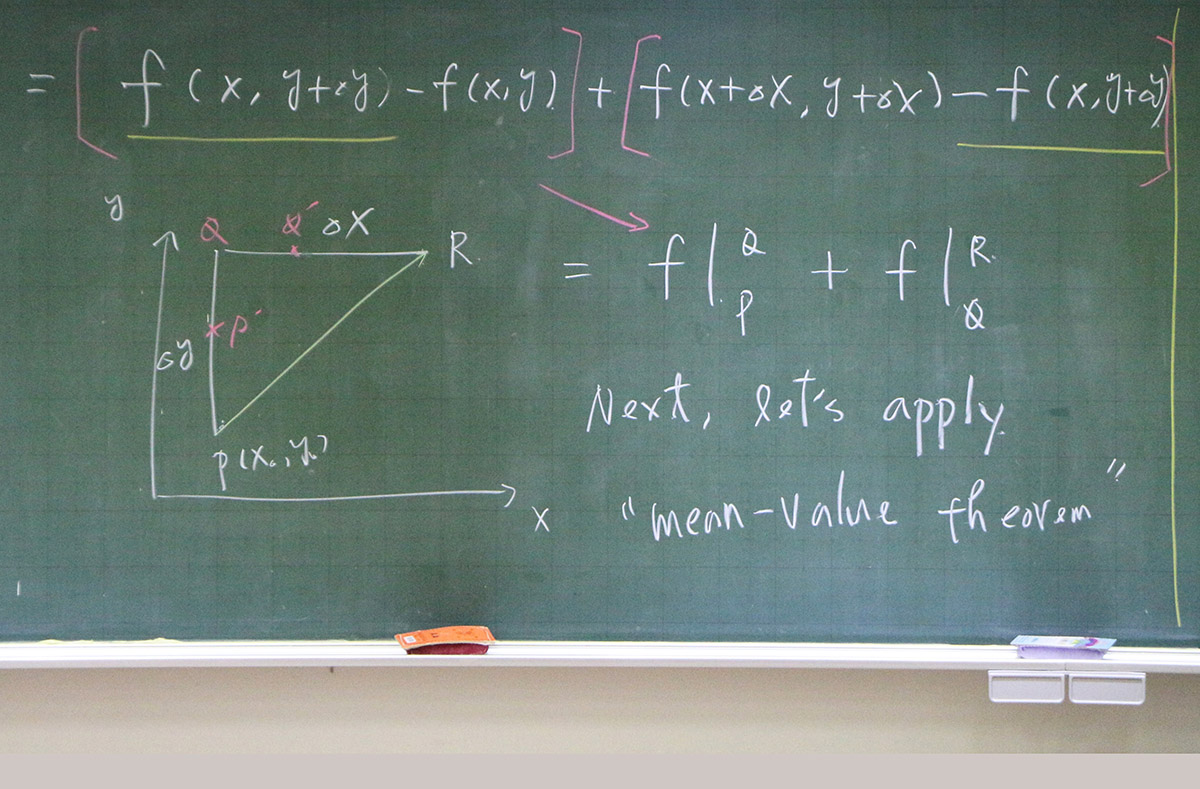 = [ f(x, y+δy) - f(x,y) ] + [ f(x+δX, y+δX) - f(x,y+δy) ]
y
Q Q′ δX R.
= f|Q P + f|R. Q
P′
δy
P(x₀,y₀)
x
Next, let's apply
"mean-value theorem"